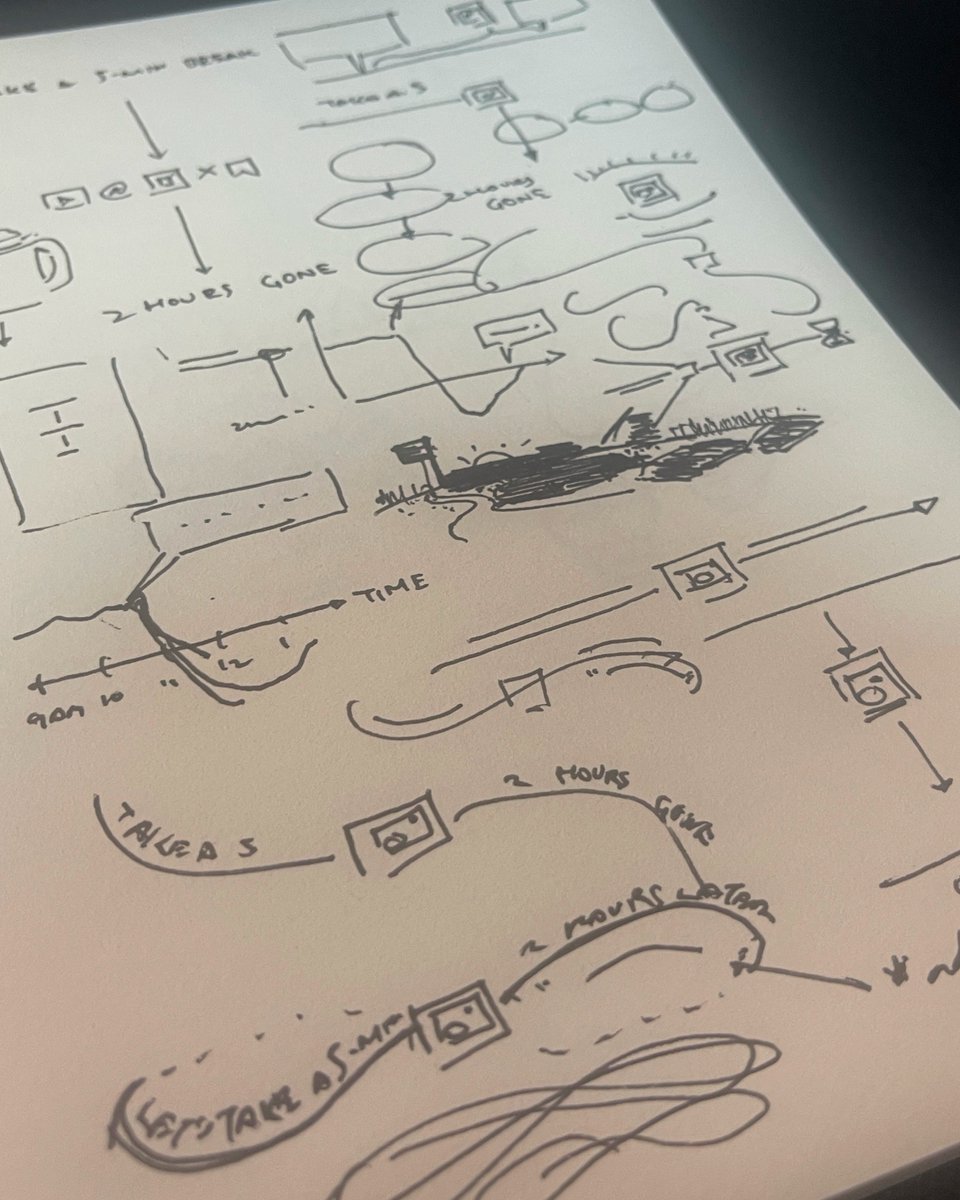 A 5-MIN BREAK
TAKE A 5
@
X
2 HOURS
GONE
2 HOURS GONE
TIME
9AM 10 11 12 1
TAKE A 5
2 HOURS GONE
2 HOURS LATER
TAKE A 5-MI